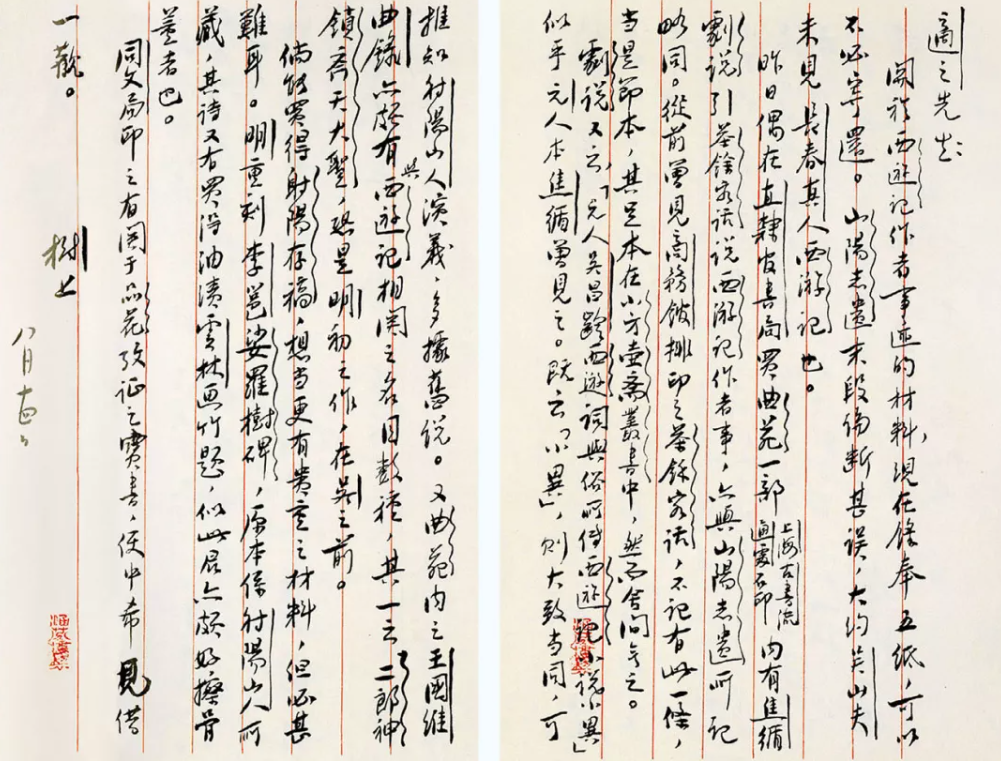 適之先生：
關於西遊記作者事迹的材料，現在錄奉五紙，可以
不必寄還。山陽志遺末段論斷甚誤，大約吳山夫
未見長春真人西游記也。
昨日偶在直隸官書局買曲苑一部 上海古書流通處石印 内有焦循
劇說引茶餘客話說西游記作者事，亦與山陽志遺所記
略同。從前曾見商務館排印之茶餘客話，不記有此一條，
当是節本，其足本在小方壺齋叢書中，然而舍間無之。
劇說又云，「元人吳昌齡西遊詞與俗所傳西遊記小說小異」
似乎元人本焦循曾見之。既云「小異」，則大致当同，可
推知射陽山人演義，多據舊說。又曲苑内之王國維
曲錄亦頗有與西遊記相關之名目數種，其一云二郎神
鎖齊天大聖，恐是明初之作，在吳之前。
倘能買得射陽存稿，想当更有貴重之材料，但必甚
難耳。明重刻李邕娑羅樹碑，原本係射陽山人所
藏，其詩又有買得油漬雲林画竹題，似此君亦頗好擦骨
董者也。
同文局印之有關于品花攷证之寶書，便中希見借
一觀。
樹上
八月十四日